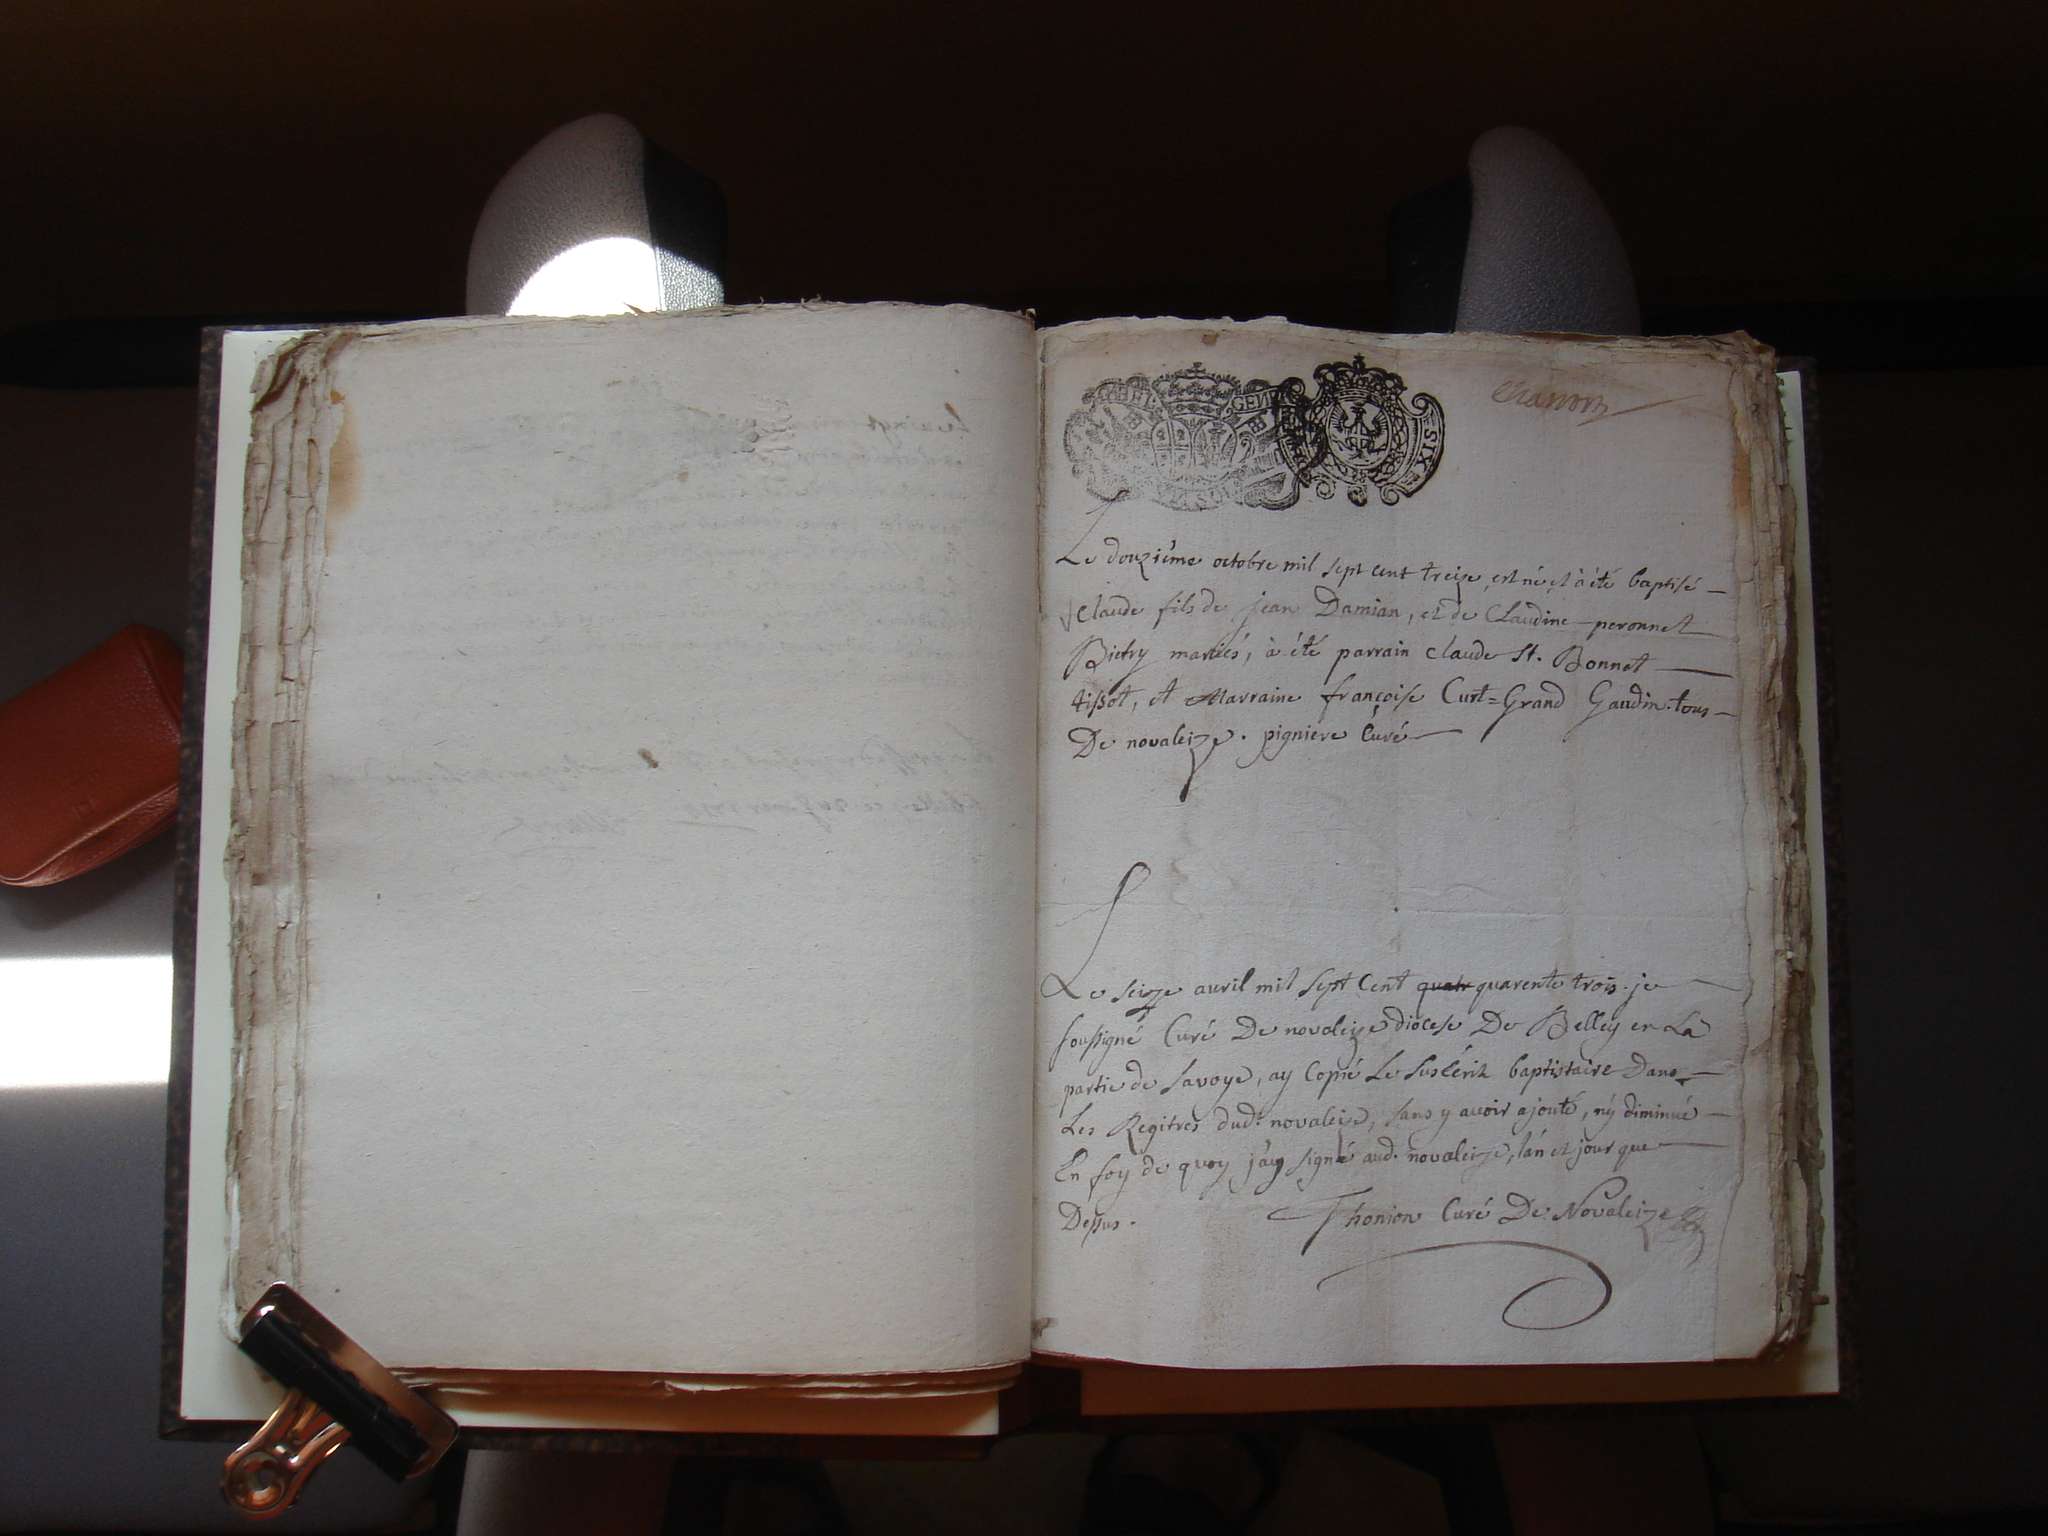 GEN
SIX
Le douziéme octobre mil sept cent treize, est né, et à été baptisé
Claude fils de jean Damian, et de Claudine peronnet
Bietry mariés, à été parrain claude St. Bonnet
tissot, et Marraine françoise Curt=Grand Gaudin. tous
De novaleize. pigniere Curé
Le seize avril mil sept Cent quatr quarente trois. je
soussigné Curé De novaleize diocese De Belley en La
partie de Savoye, ay Copié Le Susécrit baptistaire Dans
Les Regitres dud. novaleize, sans y avoir ajouté, ny diminué
En foy de quoy j'ay signé aud. novaleize, lán et jour que
Dessus.
Thonion Curé De Novaleize